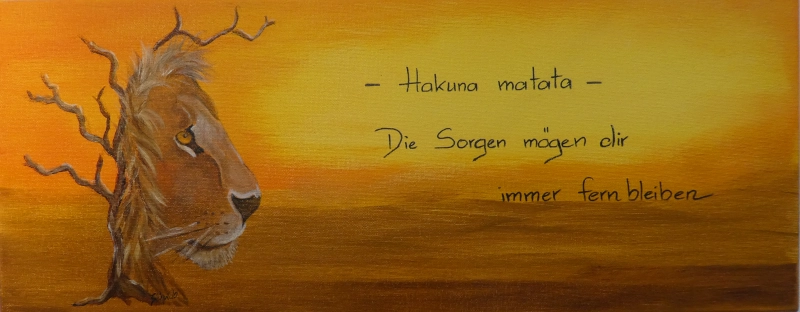 – Hakuna matata –
Die Sorgen mögen dir
immer fern bleiben